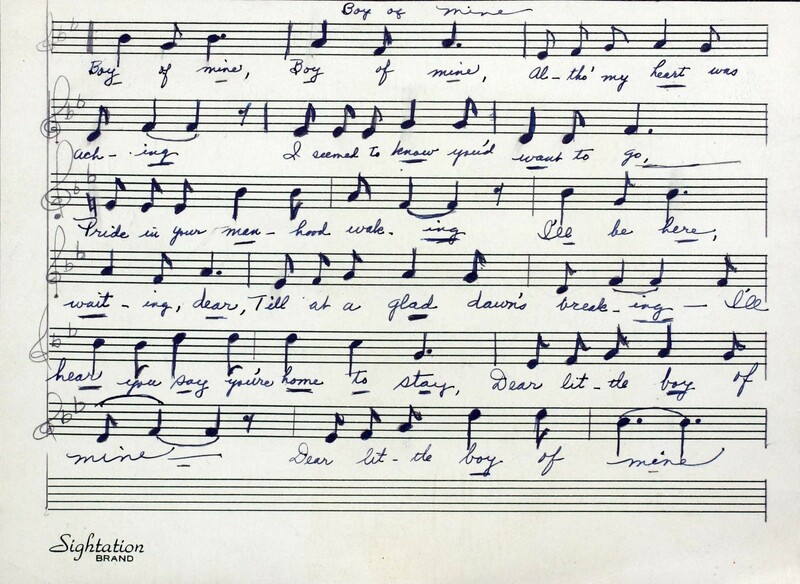 Boy of mine
Boy of mine, Boy of mine, Al-tho' my heart was
ach-ing I seemed to know you'd want to go,
Pride in your man-hood wak-ing I'll be here,
wait-ing, dear, Till at a glad dawn's break-ing — I'll
hear you say you're home to stay, Dear lit-tle boy of
mine — Dear lit-tle boy of mine
Sightation
BRAND